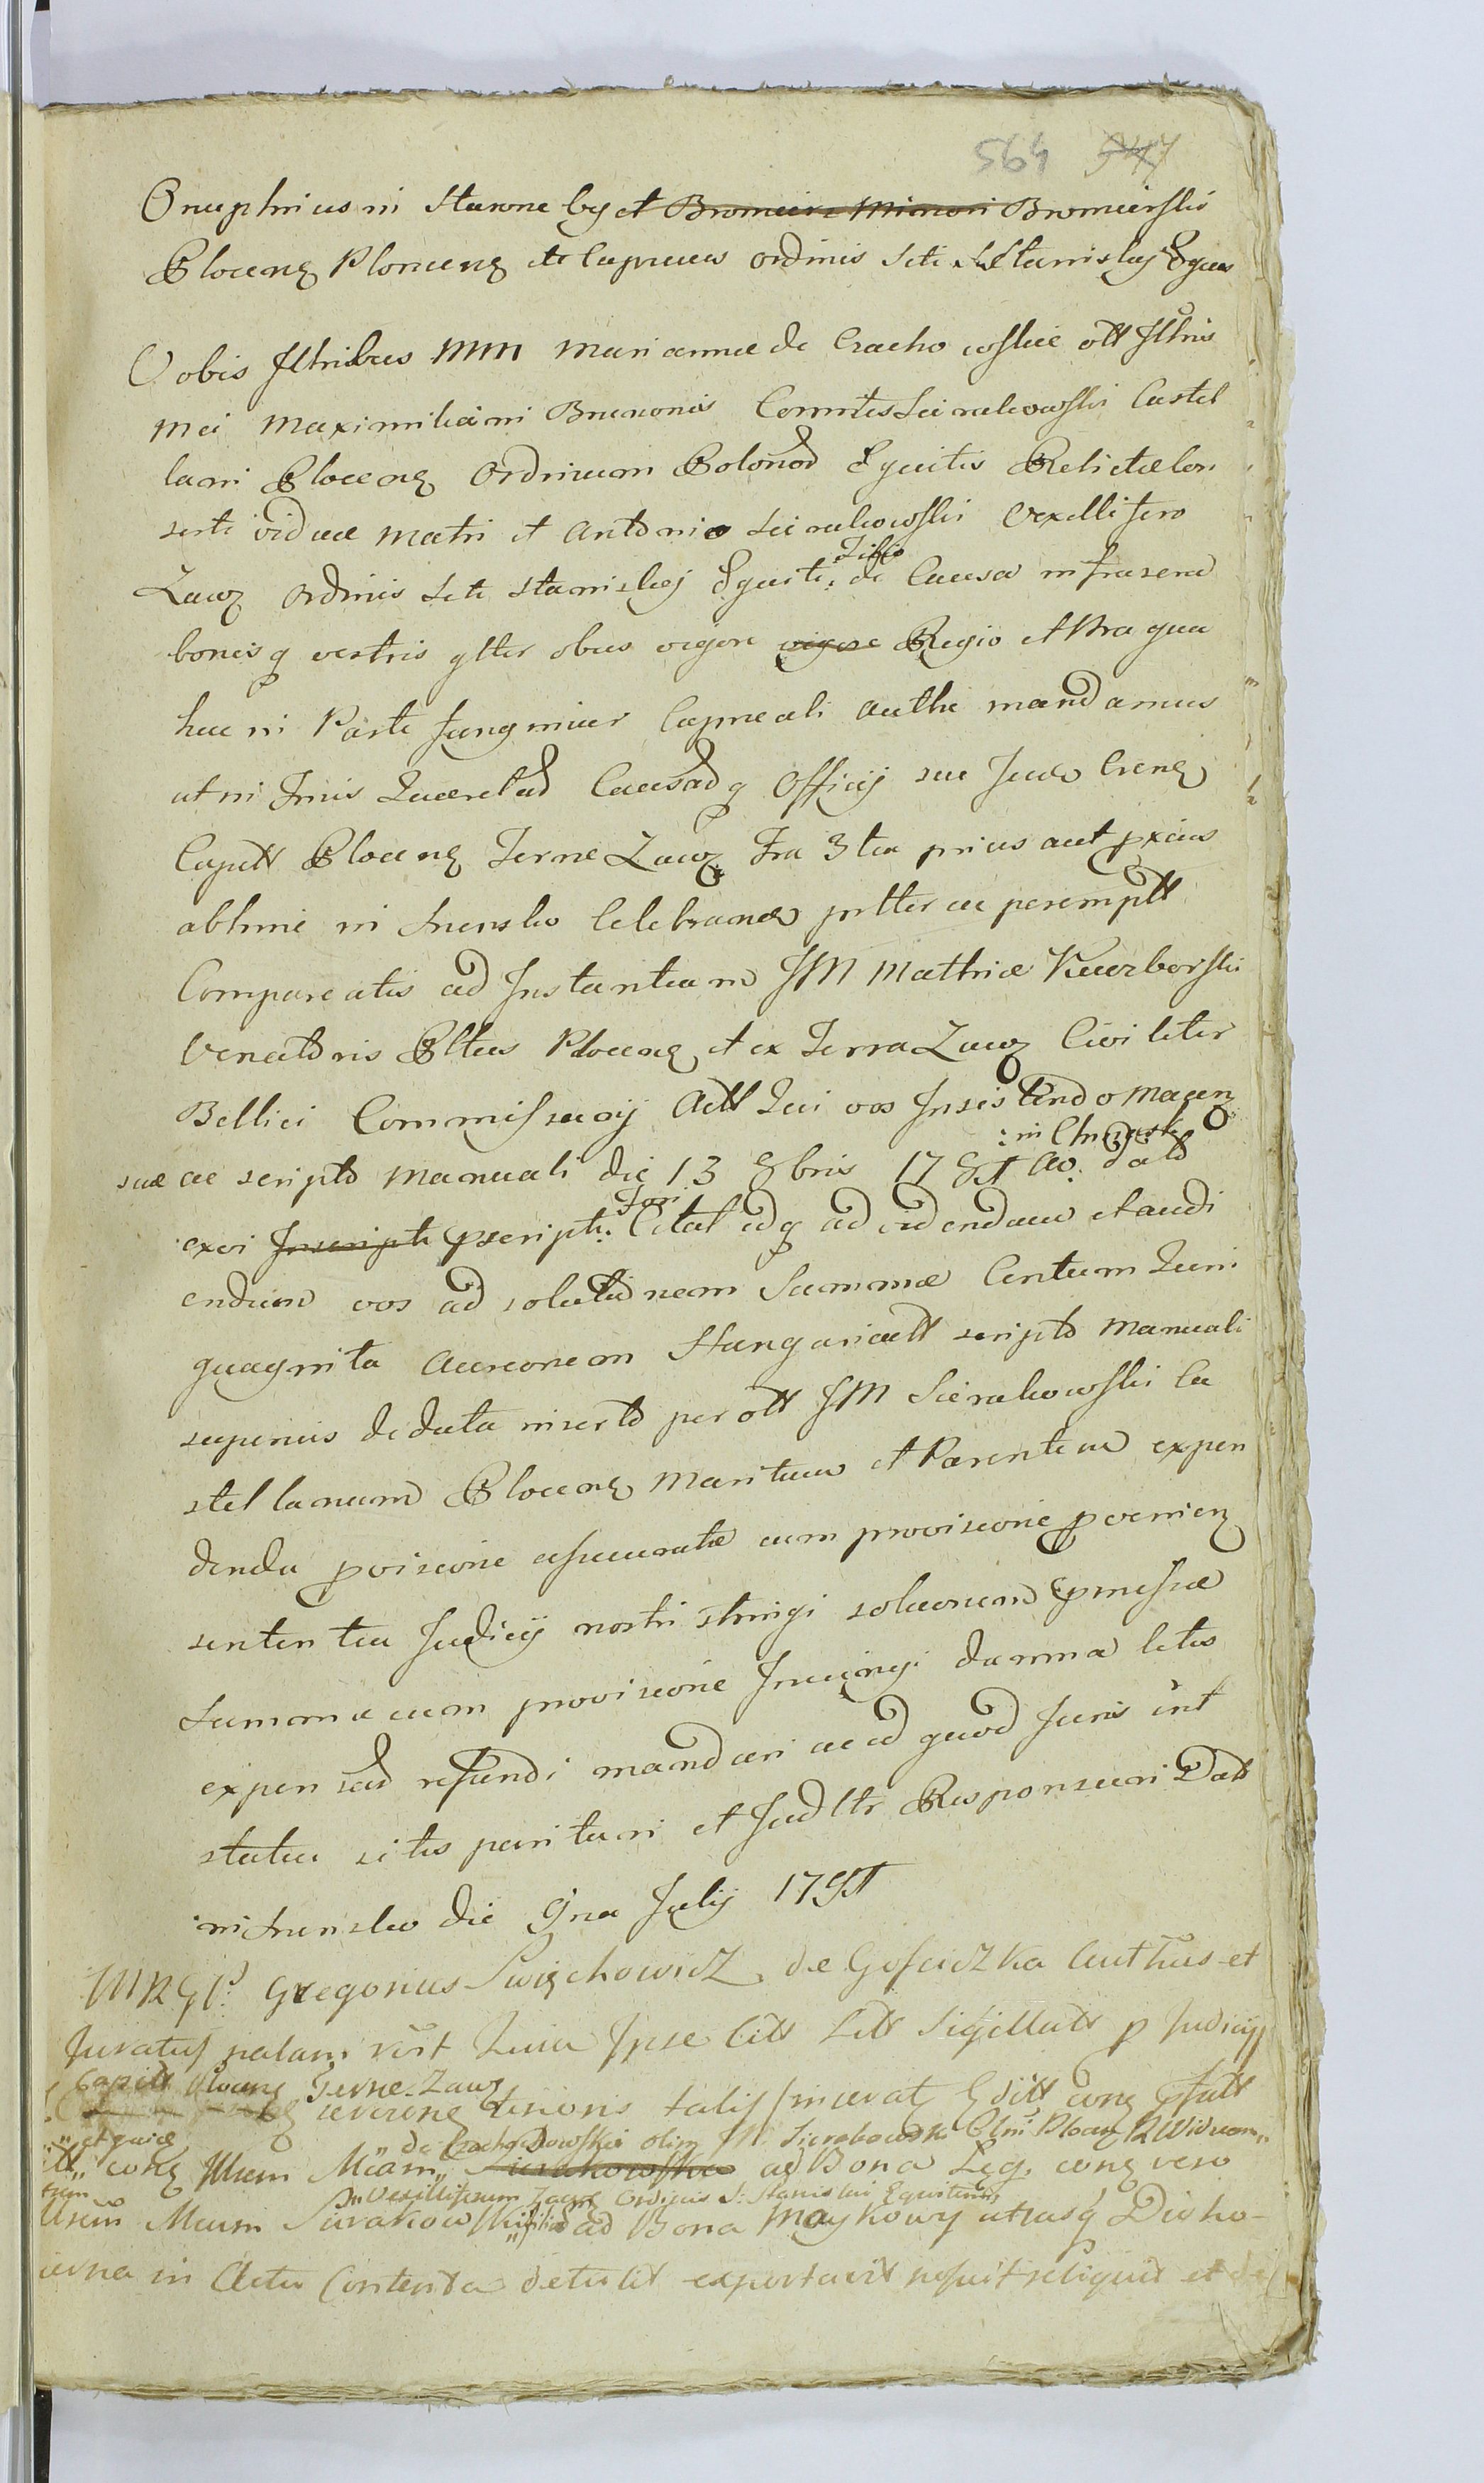 564 547
Onuphrius in Starozreby et Bromierz Minori Bromierski
Plocens Plonens et Capneus Ordinis Scti Stanislaj Eques
Vobis Illribus MM Mariannae de Czachowskie olt Illris
Mei Maximiliani Brunonis Comitis Sierakowski Castel
lani Plocens Ordinum Polonor Equitis Relictae Con
sorti viduae Matri et Antonio Sierakowski Vexillifero
Zawz Ordinis Scti Stanislaj Equiti: Filio de Causa infrascrip
bonisq vestris gltter obus vigore vigore Regio et Nra qua
hac in Parte fungimur Capneali autthe mandamus
ut in Fnis Querelar Causarq Officij sue Judo Crens
Capitt Plocens Terrae Zawz Fra 3tia prius aut pxius
abhinc in Srensko Celebrand pntter ac peremptt
Compareatis ad Instantiam JM Mathiae Kawzborski
Venatoris Pltus Plocens et ex Terra Zawz Civiliter
Bellici Commissarij Actt Qui vos Insistendo Macen
:in Chrapsk
suae ac scripto Manuali die 13 8bris 1787 Ao. dato
exvi Inscripti pscripti: Fori Citat idq ad videndum et audi
endum vos ad solutionem Summae Centum Quin
quaginta Aureorum Hungaricatt scripto Manuali
superius de data inserto per olt JM Sierakowski Ca
stellanum Plocens Maritum et Parentem expen
denda pvisione assecuratae cum provisione pvenien
sententia Judicij nostri stringi solvonem pmissae
Summae cum provisione Injungi damna litis
expensas refundi mandari ac id quod Juris int
statu sitis parituri et Judltr Responsuri Datt
in Srensko die 9na Julij 1791
MRGP. Gregorius Swięchowicz de Gosciszka Autthus et
Juratus palam rért Quia Ipse Citt Litt Sigillatt p Judicij
Capitt Plocens Terrae Zawz
reverens tenoris talis sincerat Editt cons psatt
et quid de Czachorowskie olim JM Sierakowski Clni Plocen R Viduam
cons Illrem Mcam Sierakowska ad Bona Leg. cons vero
Vexilliferum Zawz Ordinis S: Stanislai Equitum
Illrem Mcum Sierakowski filiu ad Bona Maykowy utrasq Die ho-
dierna in Actu Contenta detulit exportavit posuit reliquid et de